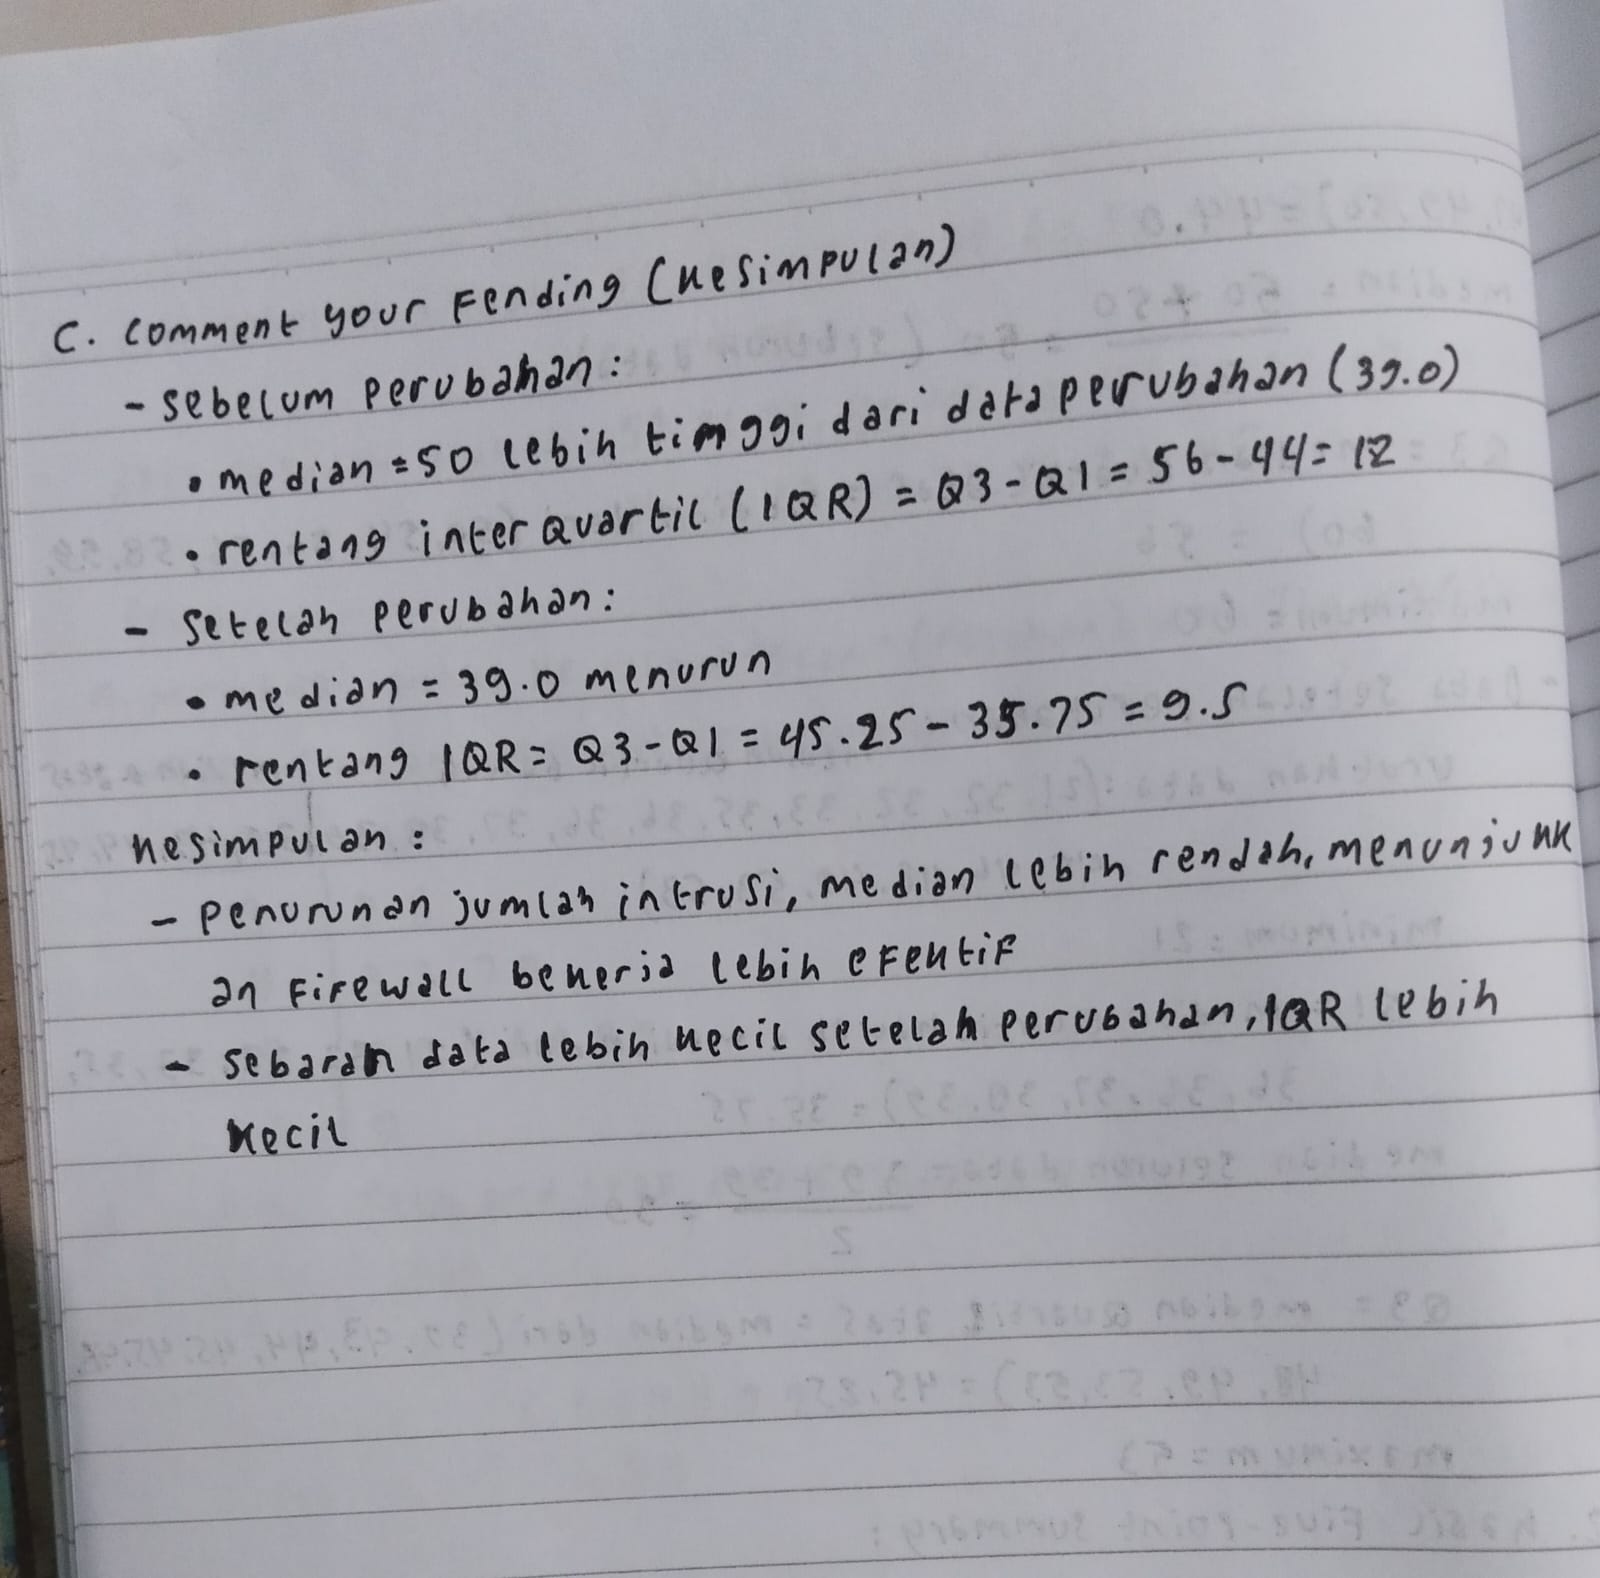 C. Comment your Fending (Kesimpulan)
- sebelum perubahan :
• median = 50 lebih timggi dari data perubahan (39.0)
• rentang inter Quartil (IQR) = Q3 - Q1 = 56 - 44 = 12
- Setelah perubahan :
• median = 39.0 menurun
• rentang IQR = Q3 - Q1 = 45.25 - 35.75 = 9.5
Kesimpulan :
- Penurunan jumlah intrusi, median lebih rendah, menunjukk
an Firewall bekerja lebih efektif
- sebaran data lebih kecil setelah perubahan, IQR lebih
kecil